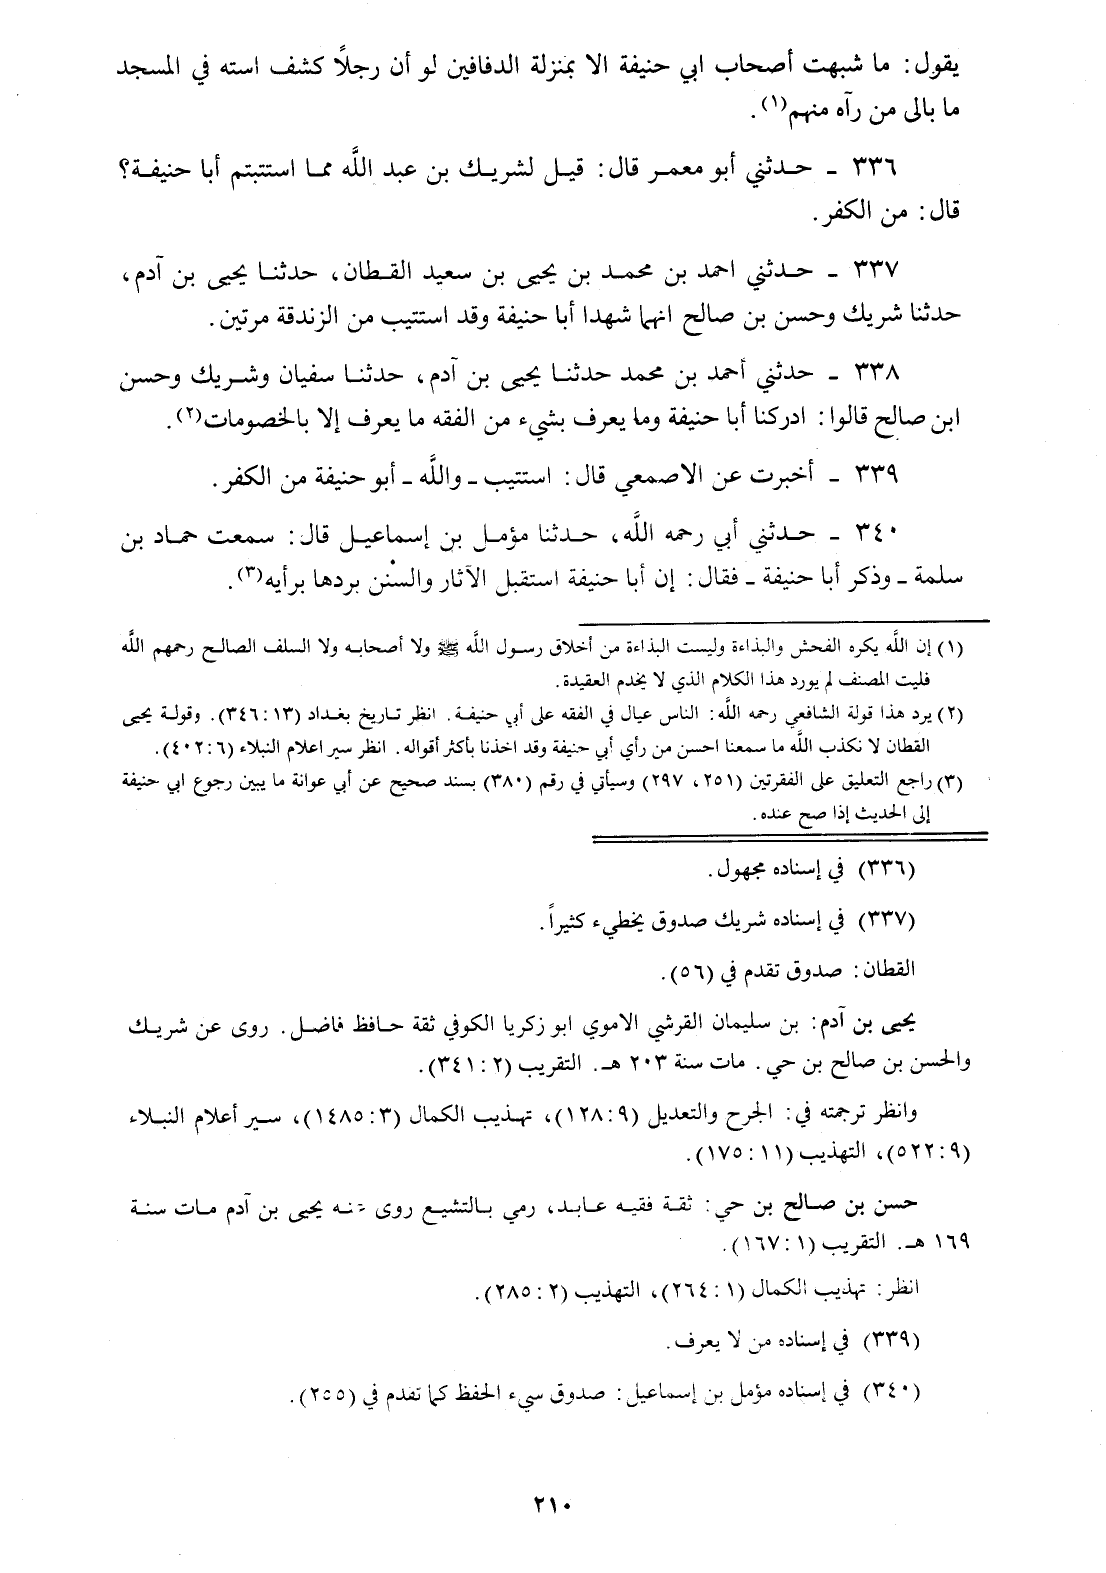 يقول: ما شبهت أصحاب ابي حنيفة الا بمنزلة الدفافين لو أن رجلاً كشف استه في المسجد
ما بالى من رآه منهم(١).
٣٣٦ ـ حدثني أبو معمر قال: قيل لشريك بن عبد اللَّه مما استتبتم أبا حنيفة؟
قال: من الكفر.
٣٣٧ ـ حدثني احمد بن محمد بن يحيى بن سعيد القطان، حدثنا يحيى بن آدم،
حدثنا شريك وحسن بن صالح انهما شهدا أبا حنيفة وقد استتيب من الزندقة مرتين.
٣٣٨ ـ حدثني أحمد بن محمد حدثنا يحيى بن آدم، حدثنا سفيان وشريك وحسن
ابن صالح قالوا: ادركنا أبا حنيفة وما يعرف بشيء من الفقه ما يعرف إلا بالخصومات(٢).
٣٣٩ ـ أخبرت عن الاصمعي قال: استتيب ـ واللَّه ـ أبو حنيفة من الكفر.
٣٤٠ ـ حدثني أبي رحمه اللَّه، حدثنا مؤمل بن إسماعيل قال: سمعت حماد بن
سلمة ـ وذكر أبا حنيفة ـ فقال: إن أبا حنيفة استقبل الآثار والسنن بردها برأيه(٣).
(١) إن اللَّه يكره الفحش والبذاءة وليست البذاءة من أخلاق رسول اللَّه ﷺ ولا أصحابه ولا السلف الصالح رحمهم اللَّه
فليت المصنف لم يورد هذا الكلام الذي لا يخدم العقيدة.
(٢) يرد هذا قولة الشافعي رحمه اللَّه: الناس عيال في الفقه على أبي حنيفة. انظر تاريخ بغداد (١٣: ٣٤٦). وقولة يحيى
القطان لا نكذب اللَّه ما سمعنا احسن من رأي أبي حنيفة وقد اخذنا بأكثر أقواله. انظر سير اعلام النبلاء (٦: ٤٠٢).
(٣) راجع التعليق على الفقرتين (٢٥١، ٢٩٧) وسيأتي في رقم (٣٨٠) بسند صحيح عن أبي عوانة ما يبين رجوع ابي حنيفة
إلى الحديث إذا صح عنده.
(٣٣٦) في إسناده مجهول.
(٣٣٧) في إسناده شريك صدوق يخطيء كثيراً.
القطان: صدوق تقدم في (٥٦).
يحيى بن آدم: بن سليمان القرشي الاموي ابو زكريا الكوفي ثقة حافظ فاضل. روى عن شريك
والحسن بن صالح بن حي. مات سنة ٢٠٣ هـ. التقريب (٢: ٣٤١).
وانظر ترجمته في: الجرح والتعديل (٩: ١٢٨)، تهذيب الكمال (٣: ١٤٨٥)، سير أعلام النبلاء
(٩: ٥٢٢)، التهذيب (١١: ١٧٥).
حسن بن صالح بن حي: ثقة فقيه عابد، رمي بالتشيع روى عنه يحيى بن آدم مات سنة
١٦٩ هـ. التقريب (١: ١٦٧).
انظر: تهذيب الكمال (١: ٢٦٤)، التهذيب (٢: ٢٨٥).
(٣٣٩) في إسناده من لا يعرف.
(٣٤٠) في إسناده مؤمل بن إسماعيل: صدوق سيء الحفظ كما تقدم في (٢٥٥).
٢١٠